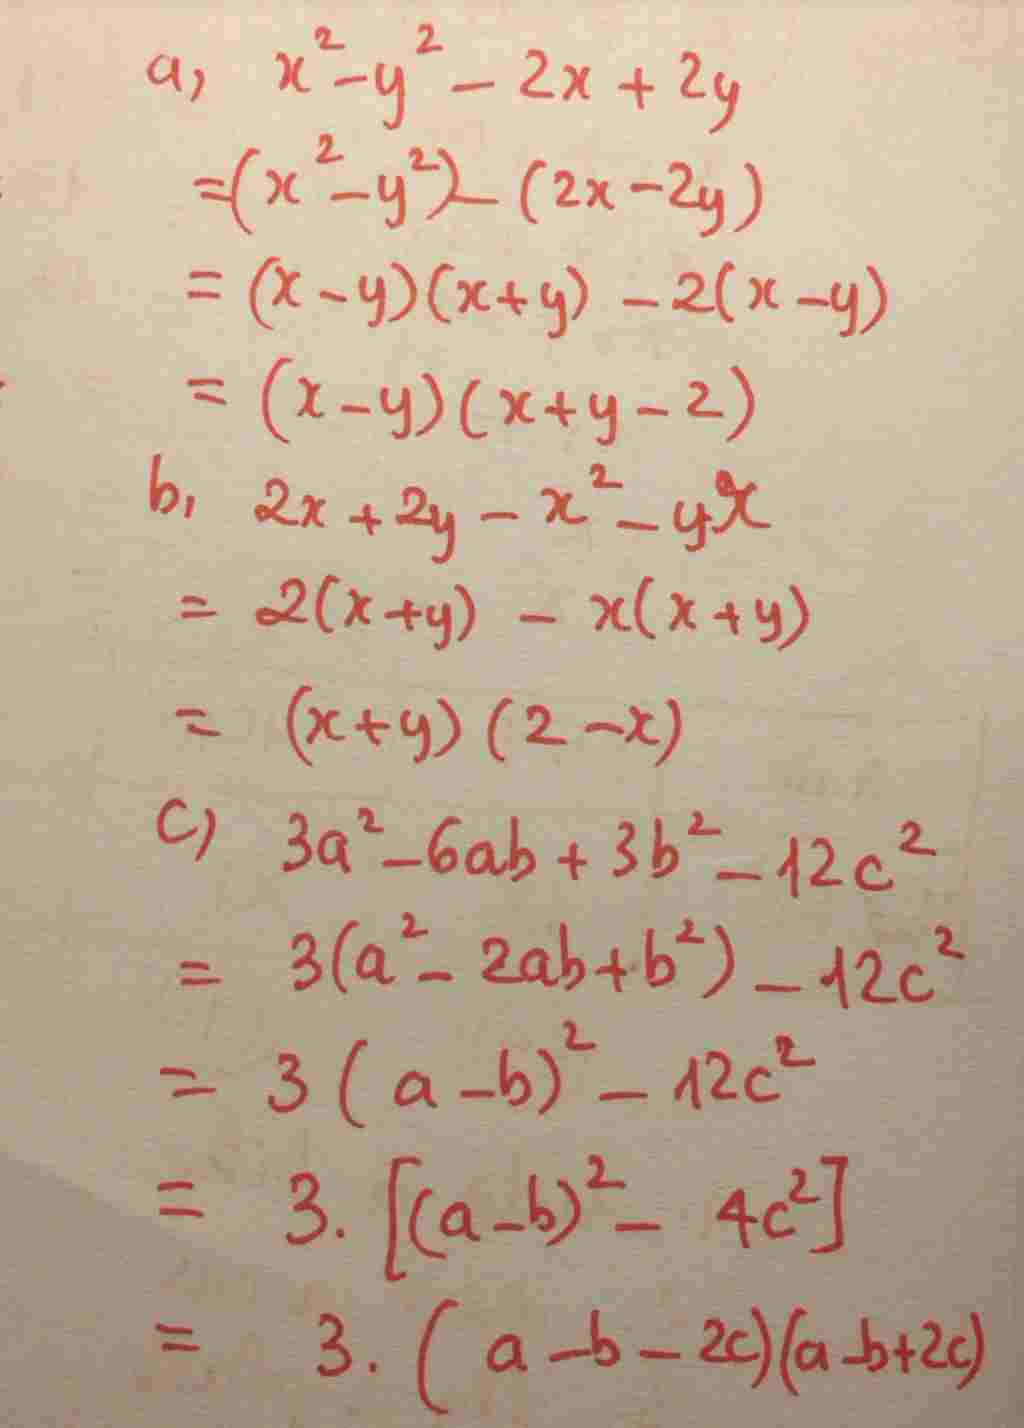 a, x² - y² - 2x + 2y
= (x² - y²) - (2x - 2y)
= (x - y)(x + y) - 2(x - y)
= (x - y)(x + y - 2)
b, 2x + 2y - x² - yx
= 2(x + y) - x(x + y)
= (x + y)(2 - x)
c) 3a² - 6ab + 3b² - 12c²
= 3(a² - 2ab + b²) - 12c²
= 3(a - b)² - 12c²
= 3.[(a - b)² - 4c²]
= 3.(a - b - 2c)(a - b + 2c)